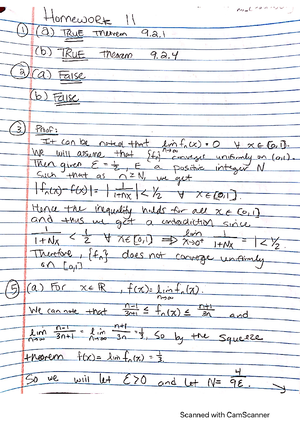 Homework 11
① (a) TRUE Theorem 9.2.1
(b) TRUE Theorem 9.2.4
② (a) False
(b) False
③ Proof:
It can be noted that lim n→∞ fn(x) = 0 ∀ x ∈ (0,1].
We will assume that {fn} converges uniformly on (0,1].
Then given ε = 1/2, ∃ a positive integer N
Such that as n ≥ N, we get
|fn(x) - f(x)| = |1/(1+nx)| < 1/2 ∀ x ∈ (0,1].
Hence the inequality holds for all x ∈ (0,1]
and thus we get a contradiction since
1/(1+Nx) < 1/2 ∀ x ∈ (0,1] ⟹ lim x→0+ 1/(1+Nx) = 1 < 1/2.
Therefore, {fn} does not converge uniformly
on (0,1]
⑤ (a) For x ∈ ℝ, f(x) = lim n→∞ fn(x).
We can note that (n-1)/(3n+1) ≤ fn(x) ≤ (n+1)/3n and
lim n→∞ (n-1)/(3n+1) = lim n→∞ (n+1)/3n = 1/3, So by the Squeeze
theorem f(x) = lim fn(x) = 1/3.
So we will let ε>0 and let N = 4/9ε.
Scanned with CamScanner